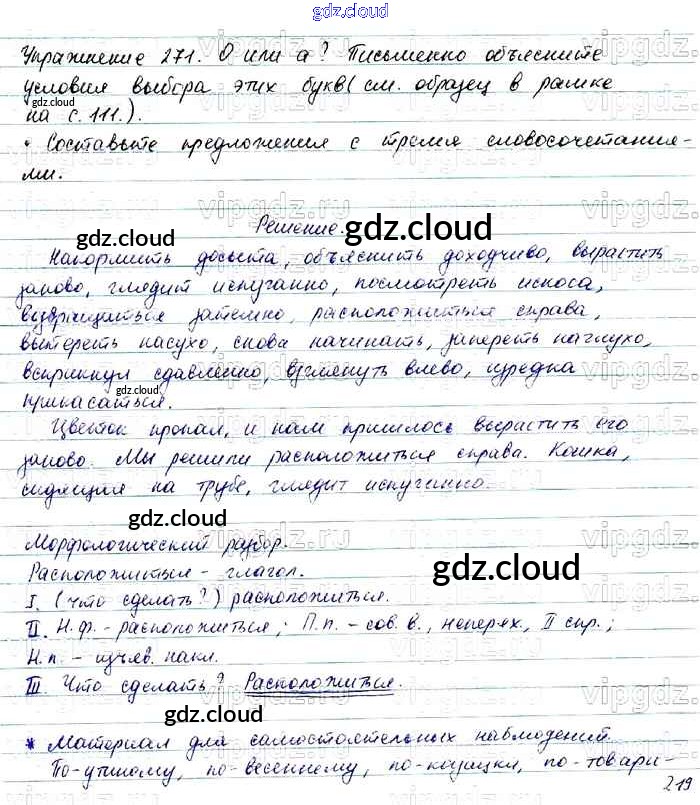 gdz.cloud
Упражнение 271. О или а? Письменно объясните
условия выбора этих букв (см. образец в рамке
на с. 111.).
• Составьте предложения с тремя словосочетания-
ми.
Решение.
Накормить досыта, объяснить доходчиво, вырастить
заново, глядит испуганно, посмотреть искоса,
возвращаться затемно, расположиться справа,
вытереть насухо, снова начинать, запереть наглухо,
вскрикнул сдавленно, взглянуть влево, изредка
прикасаться.
Цветок пропал, и нам пришлось вырастить его
заново. Мы решили расположиться справа. Кошка,
сидящая на трубе, глядит испуганно.
Морфологический разбор.
Расположиться - глагол.
I. (Что сделать?) расположиться.
II. Н.ф. - расположиться; П.п. - сов. в., неперех., II спр.;
Н.п. - изъяв. накл.
III. Что сделать? Расположиться.
* Материал для самостоятельных наблюдений.
По-утиному, по-весеннему, по-казацки, по-товари-
219